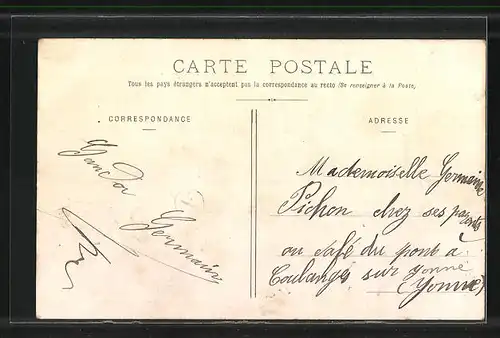 CARTE POSTALE
Tous les pays étrangers n'acceptent pas la correspondance au recto (Se renseigner à la Poste)
CORRESPONDANCE
ADRESSE
Germain
Mademoiselle Germaine
Pichon chez ses parents
au café du pont à
Coulanges sur Yonne
(Yonne)